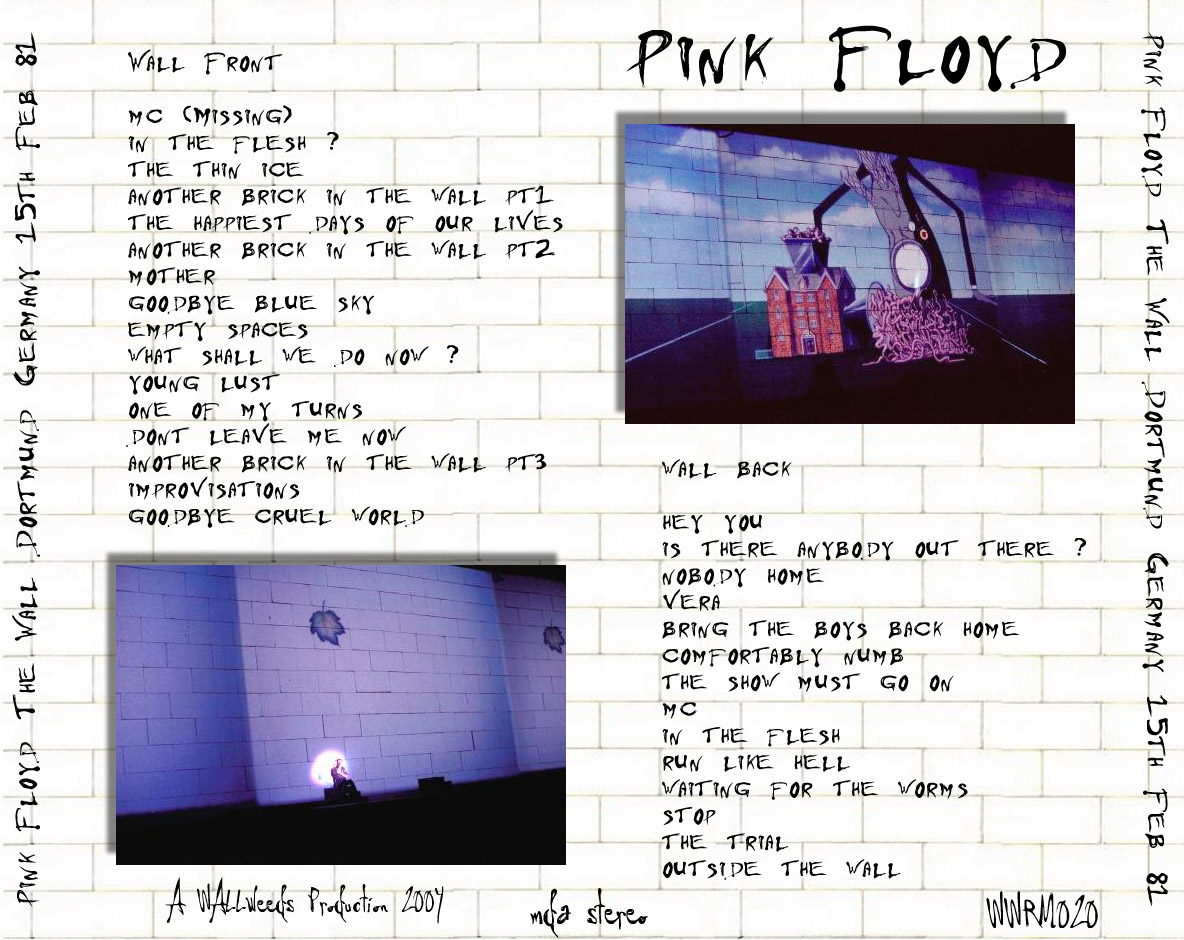 PINK FLOYD THE WALL DORTMUND GERMANY 15TH FEB 81
WALL FRONT
MC (MISSING)
IN THE FLESH ?
THE THIN ICE
ANOTHER BRICK IN THE WALL PT1
THE HAPPIEST DAYS OF OUR LIVES
ANOTHER BRICK IN THE WALL PT2
MOTHER
GOODBYE BLUE SKY
EMPTY SPACES
WHAT SHALL WE DO NOW ?
YOUNG LUST
ONE OF MY TURNS
DONT LEAVE ME NOW
ANOTHER BRICK IN THE WALL PT3
IMPROVISATIONS
GOODBYE CRUEL WORLD
PINK FLOYD
WALL BACK
HEY YOU
IS THERE ANYBODY OUT THERE ?
NOBODY HOME
VERA
BRING THE BOYS BACK HOME
COMFORTABLY NUMB
THE SHOW MUST GO ON
MC
IN THE FLESH
RUN LIKE HELL
WAITING FOR THE WORMS
STOP
THE TRIAL
OUTSIDE THE WALL
A WALLWeeds Production 2004
mda stereo
WWRM020
PINK FLOYD THE WALL DORTMUND GERMANY 15TH FEB 81